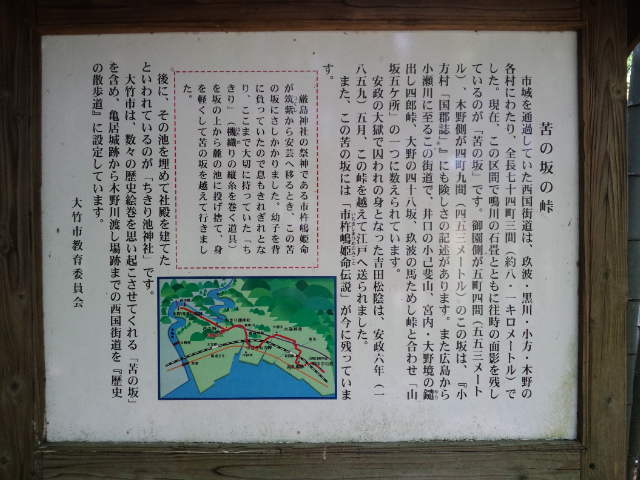 苦の坂の峠
市域を通過していた西国街道は、玖波・黒川・小方・木野の
各村にわたり、全長七十四町三間（約八・一キロメートル）で
した。現在、この区間で鳴川の石畳とともに往時の面影を残し
ているのが「苦の坂」です。御園側が五町四間（五五三メート
ル）、木野側が四町九間（四五三メートル）のこの坂は、『小
方村「国郡志」』にも険しさの記述があります。また広島から
小瀬川に至るこの街道で、井口の小己斐山、宮内・大野境の鑓
出し四郎峠、大野の四十八坂、玖波の馬ためし峠と合わせ「山
坂五ケ所」の一つに数えられています。
安政の大獄で囚われの身となった吉田松陰は、安政六年（一
八五九）五月、この峠を越えて江戸へ送られました。
また、この苦の坂には「市杵嶋姫命伝説」が今に残っていま
す。
厳島神社の祭神である市杵嶋姫命
が筑紫から安芸へ移るとき、この苦
の坂にさしかかりました。幼子を背
に負っていたので息もきれぎれとな
り、ここまで大切に持っていた「ち
きり」（機織りの縦糸を巻く道具）
を坂の上から麓の池に投げ捨て、身
を軽くして苦の坂を越えて行きまし
た。
後に、その池を埋めて社殿を建てた
といわれているのが「ちきり池神社」です。
大竹市は、数々の歴史絵巻を思い起こさせてくれる「苦の坂」
を含め、亀居城跡から木野川渡し場跡までの西国街道を『歴史
の散歩道』に設定しています。
大竹市教育委員会